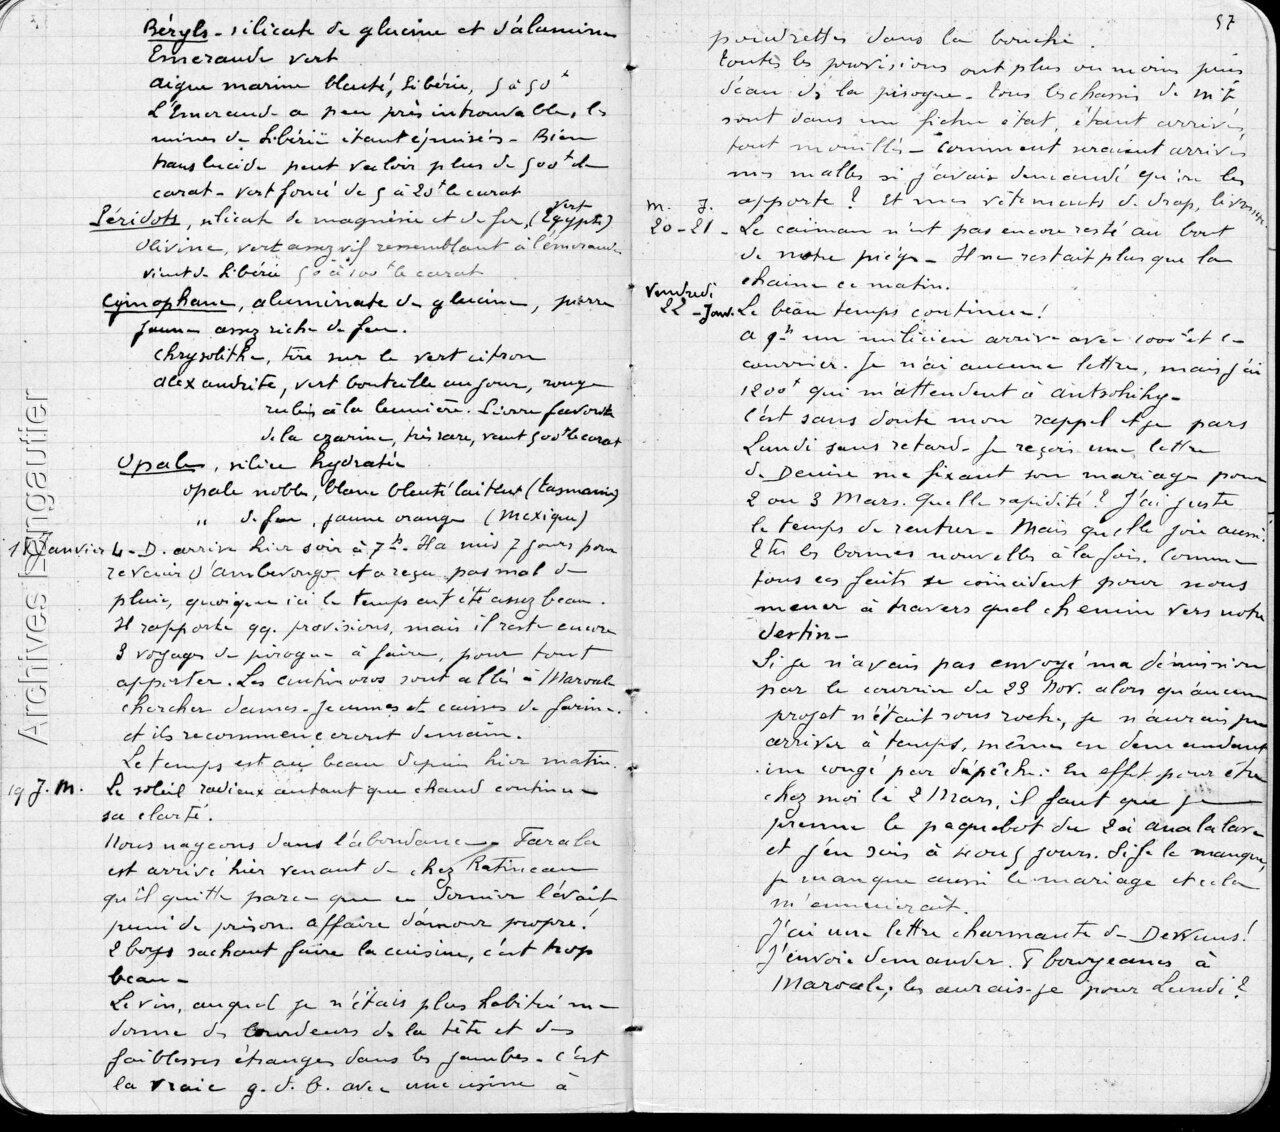 Béryls - silicate de glucine et d'alumine
Emeraude vert
aigue marine bleuté, Sibérie, 5 à 50f
L'Emeraude a peu près introuvable, les
mines de Sibérie étant épuisées - Bien
translucide peut valoir plus de 500f le
carat - vert foncé de 5 à 20f le carat
Péridots, silicate de magnésie et de fer, (vert Egypte)
Olivine, vert assez vif ressemblant à l'émeraude
vient de Sibérie 50 à 100f le carat
Cymophane, aluminate de glucine, pierre
jaune assez riche de feu.
Chrysolithe, tire sur le vert citron
alexandrite, vert bouteille au jour, rouge
rubis à la lumière. Pierre favorite
de la czarine, très rare, vaut 500f le carat
Opales, silice hydratée
opale noble, blanc bleuté laiteux (Tasmanie)
" de feu, jaune orange (Mexique)
Janvier L - D. arrive hier soir à 7h. Il a mis 7 jours pour
revenir d'Ambevongo et a reçu pas mal de
pluie, quoique ici le temps ait été assez beau.
Il rapporte qq. provisions, mais il reste encore
3 voyages de pirogue à faire, pour tout
apporter. Les sont allés à Maroala
chercher dames-jeannes et caisses de farine.
et ils recommenceront demain.
Le temps est au beau depuis hier matin.
19 J. M. Le soleil radieux autant que chaud continue
sa clarté.
Nous nageons dans l'abondance - Farala
est arrivé hier venant de chez Ratineau
qu'il quitte parce que ce dernier l'avait
puni de prison. affaire d'amour propre!
2 boys sachant faire la cuisine, c'est trop
beau -
Le vin, auquel je n'étais plus habitué me
donne des lourdeurs de la tête et des
faiblesses étranges dans les jambes - c'est
la vraie g. d. b. avec une usine à
57
poudrettes dans la bouche.
toutes les provisions ont plus ou moins pris
d'eau de la pirogue - tous les chassis de
sont dans un fichu état, étant arrivés
tout mouillés - Comment seraient arrivés
mes malles si j'avais demandé qu'on les
apporte? Et mes vêtements de drap, livres etc.
M. J.
20-21 - Le caïman n'est pas encore resté au bout
de notre piège - Il ne restait plus que la
chaîne ce matin.
Vendredi
22 - Janv. Le beau temps continue!
a 9h un milicien arrive avec 1000f et le
courrier. Je n'ai aucune lettre, mais j'ai
1200f qui m'attendent à Antsohihy -
C'est sans doute mon rappel et je pars
Lundi sans retard - Je reçois une lettre
de Denise me fixant son mariage pour
2 ou 3 Mars. Quelle rapidité? J'ai juste
le temps de rentrer - Mais quelle joie aussi!
Et les bonnes nouvelles à la fois. Comme
tous ces faits se coïncident pour nous
mener à travers quel chemin vers notre
destin -
Si je n'avais pas envoyé ma démission
par le courrier du 23 Nov. alors qu'aucun
projet n'était sous roche, je n'aurais pu
arriver à temps, même en demandant
un congé par dépêche. En effet pour être
chez moi le 2 Mars, il faut que je
prenne le paquebot du 2 à Analalava
et j'en suis à 4 ou 5 jours. Si je le manque,
je manque aussi le mariage et cela
m'ennuierait.
J'ai une lettre charmante de
J'envoie demander bourjeanes à
Maroala; les aurais-je pour Lundi?
Archives Lengautier